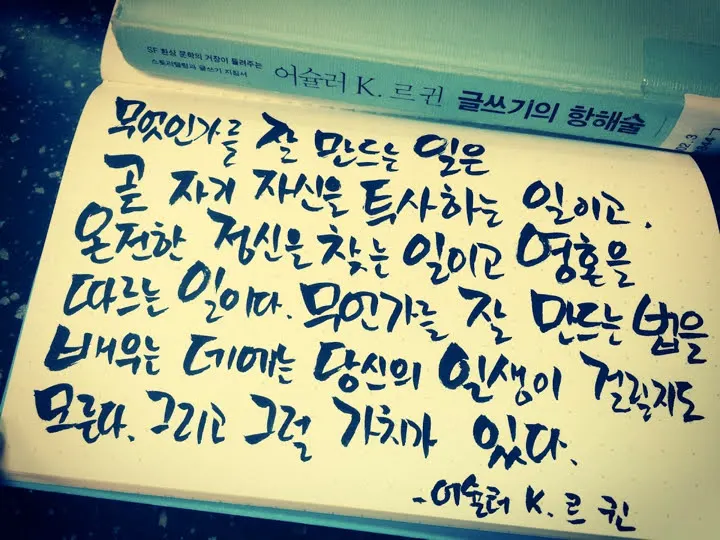 SF 환상 문학의 거장이 들려주는
스토리텔링과 글쓰기 지침서
어슐러 K. 르 귄 글쓰기의 항해술
무엇인가를 잘 만드는 일은
곧 자기 자신을 투사하는 일이고,
온전한 정신을 찾는 일이고 영혼을
따르는 일이다. 무언가를 잘 만드는 법을
배우는 데에는 당신의 일생이 걸릴지도
모른다. 그리고 그럴 가치가 있다.
- 어슐러 K. 르 귄